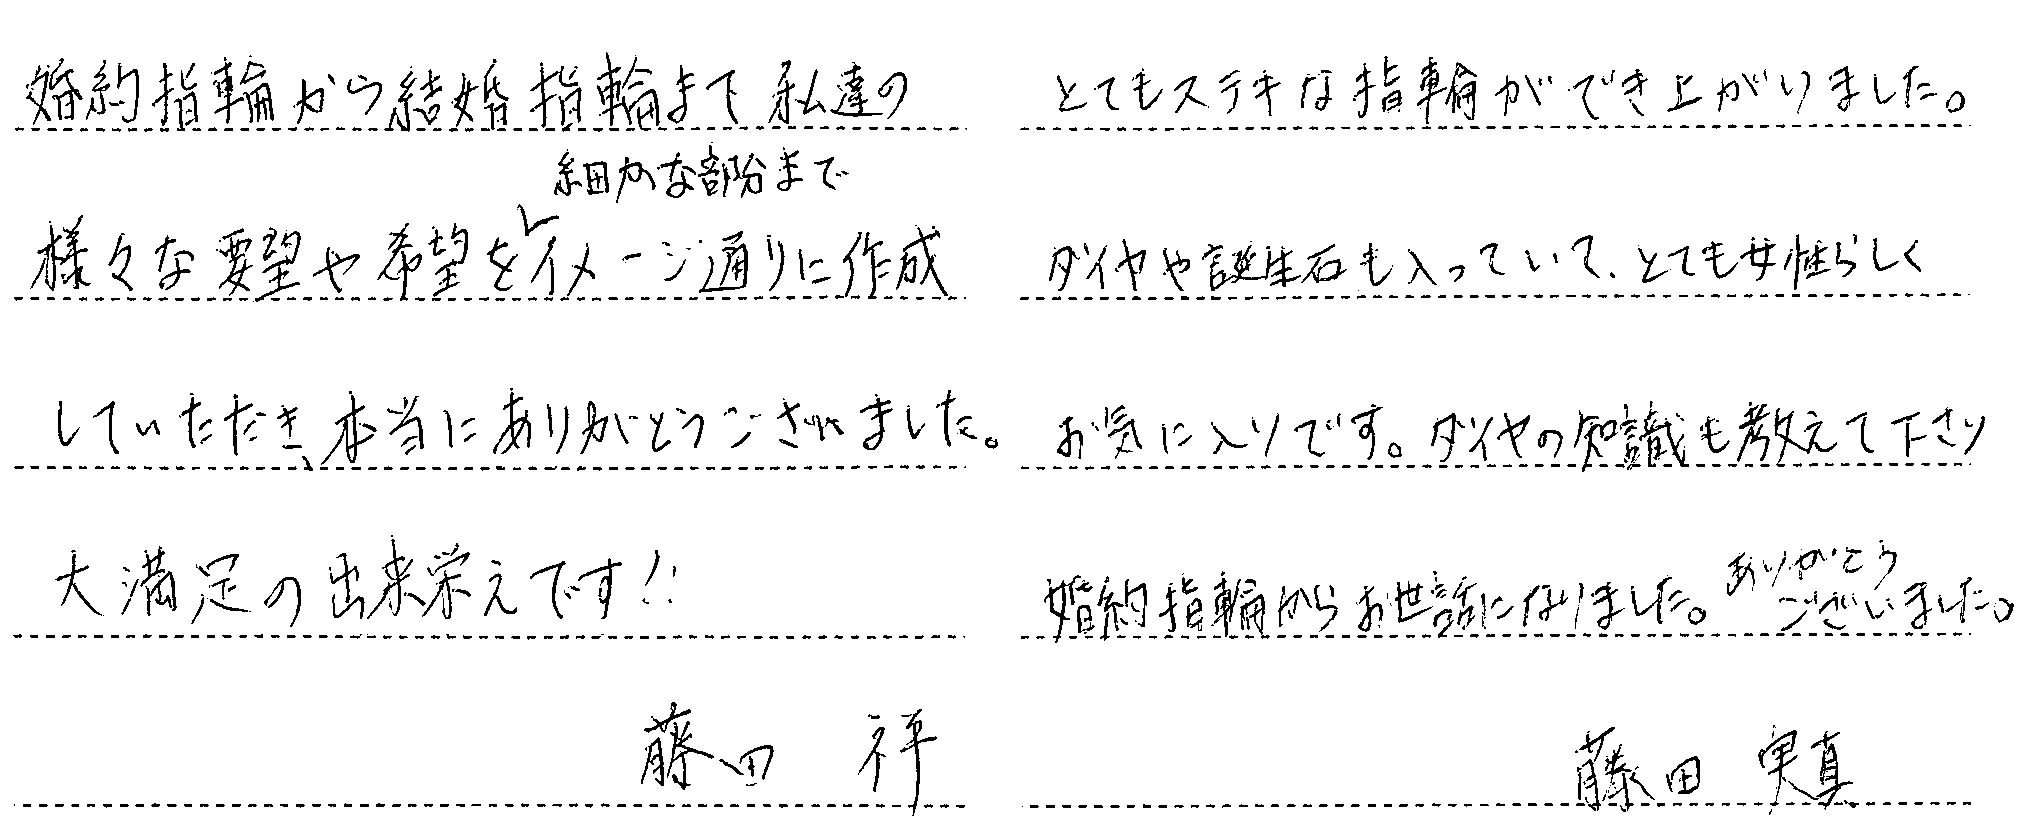 婚約指輪から結婚指輪まで私達の
細かな部分まで
様々な要望や希望をイメージ通りに作成
していただき、本当にありがとうございました。
大満足の出来栄えです!!
藤田
とてもステキな指輪ができ上がりました。
ダイヤや誕生石も入っていて、とても女性らしく
お気に入りです。ダイヤの知識も教えて下さり
婚約指輪からお世話になりました。ありがとう
ございました。
藤田 実真